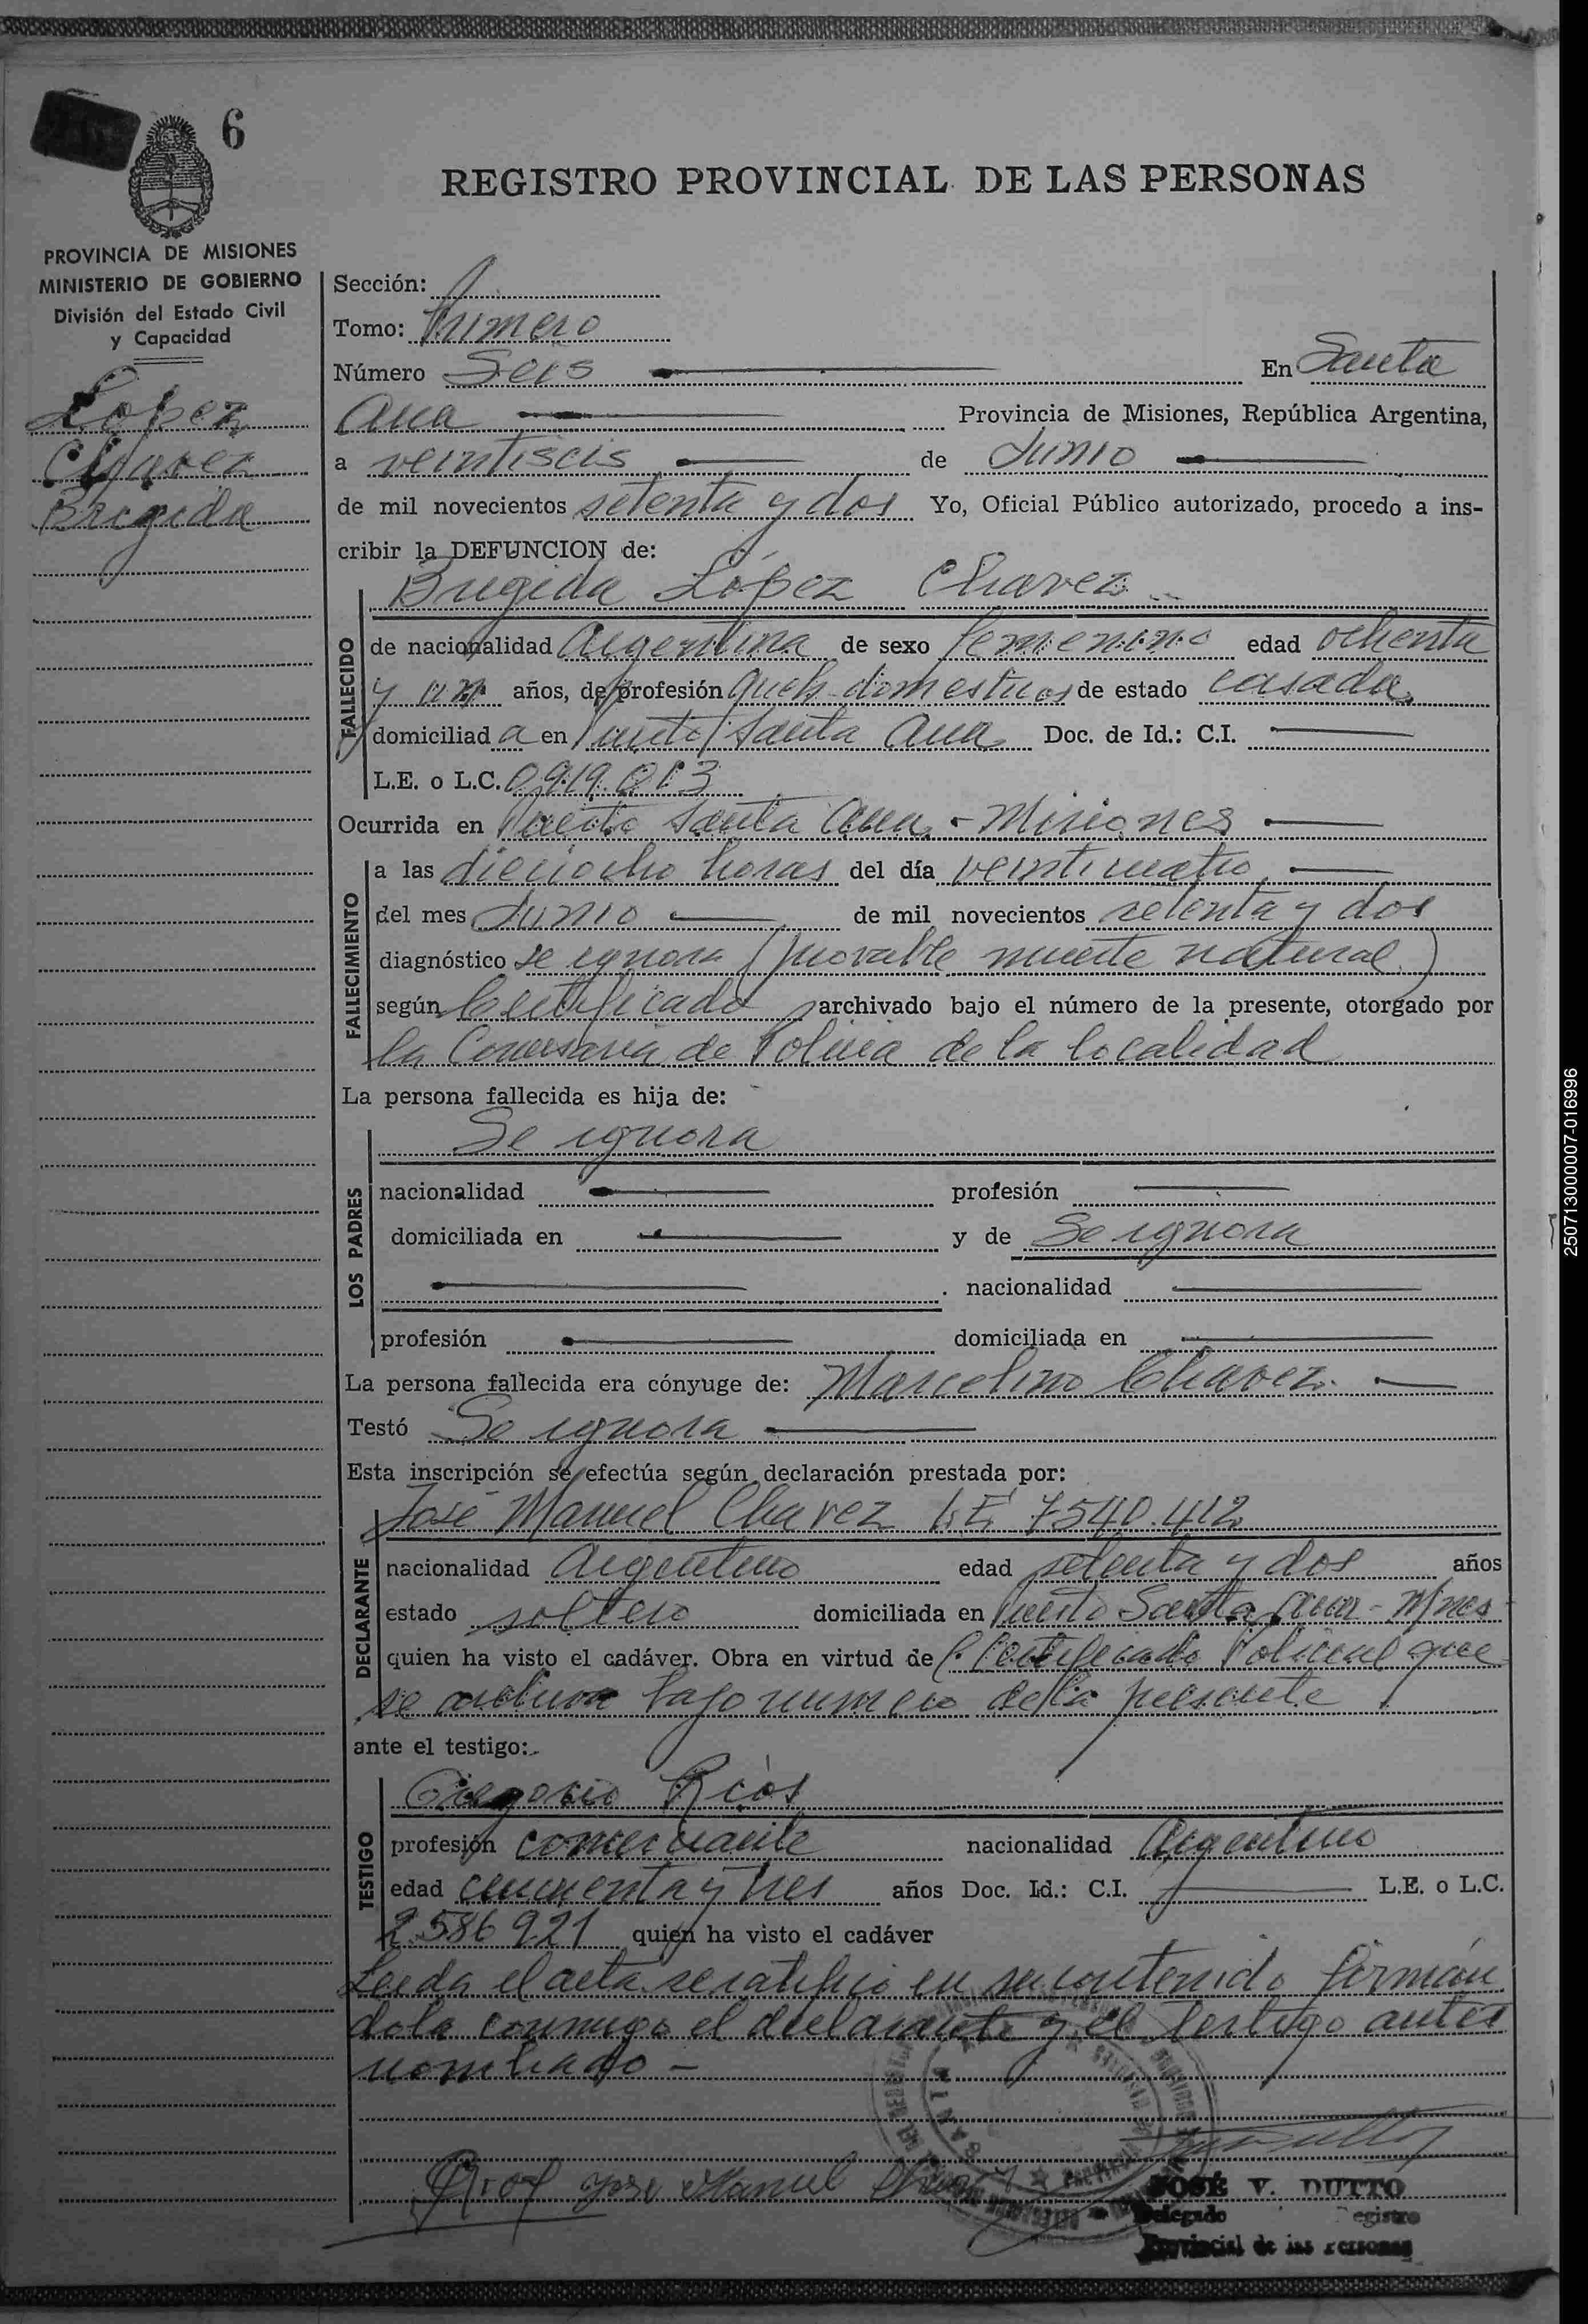 6
REGISTRO PROVINCIAL DE LAS PERSONAS
PROVINCIA DE MISIONES
MINISTERIO DE GOBIERNO
División del Estado Civil
y Capacidad
López
Chavez
Brigida
Sección:
Tomo: Primero
Número Seis En Santa
Ana Provincia de Misiones, República Argentina,
a veintiseis de Junio
de mil novecientos setenta y dos Yo, Oficial Público autorizado, procedo a ins-
cribir la DEFUNCION de:
Brigida López Chavez
FALLECIDO
de nacionalidad Argentina de sexo femenino edad ochenta
y un años, de profesión queh domesticos de estado casada
domiciliad a en Puerto Santa Ana Doc. de Id.: C.I.
L.E. o L.C. 0.919.013
Ocurrida en Puerto Santa Ana - Misiones
FALLECIMIENTO
a las dieciocho horas del día veinticuatro
del mes Junio de mil novecientos setenta y dos
diagnóstico se ignora (provable muerte natural)
según Certificado archivado bajo el número de la presente, otorgado por
la Comisaria de Policia de la localidad
La persona fallecida es hija de:
Se ignora
LOS PADRES
nacionalidad profesión
domiciliada en y de Se ignora
nacionalidad
profesión domiciliada en
La persona fallecida era cónyuge de: Marcelino Chavez
Testó Se ignora
Esta inscripción se efectúa según declaración prestada por:
José Manuel Chavez L.E. 7540.412
DECLARANTE
nacionalidad Argentino edad setenta y dos años
estado soltero domiciliada en Puerto Santa Ana - Mnes
quien ha visto el cadáver. Obra en virtud de Certificado Policial que
se archiva bajo numero de la presente
ante el testigo:
Gregorio Ríos
TESTIGO
profesión comerciante nacionalidad Argentino
edad cincuenta y tres años Doc. Id.: C.I. L.E. o L.C.
2.586.921 quien ha visto el cadáver
Leeda el acta se ratificó en su contenido firmán
dola conmigo el declarante y el testigo antes
nombrado -
Jose Manuel Chavez
JOSÉ V. DUTTO
Delegado Registro
Provincial de las Personas
250713000007-016996